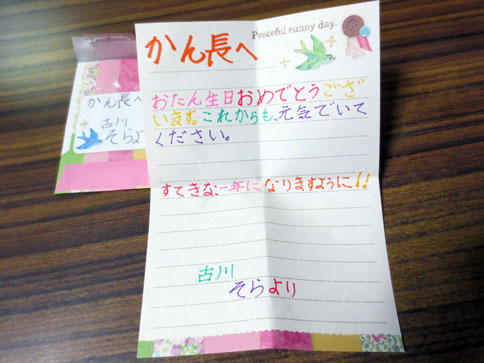 かん長へ
古川
そらより
Peaceful sunny day.
かん長へ
おたん生日おめでとうござ
います。これからも、元気でいて
ください。
すてきな一年になりますように!!
古川
そらより